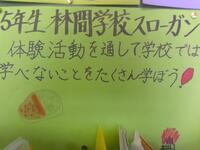 5年生 林間学校スローガン
体験活動を通して学校では
学べないことをたくさん学ぼう!